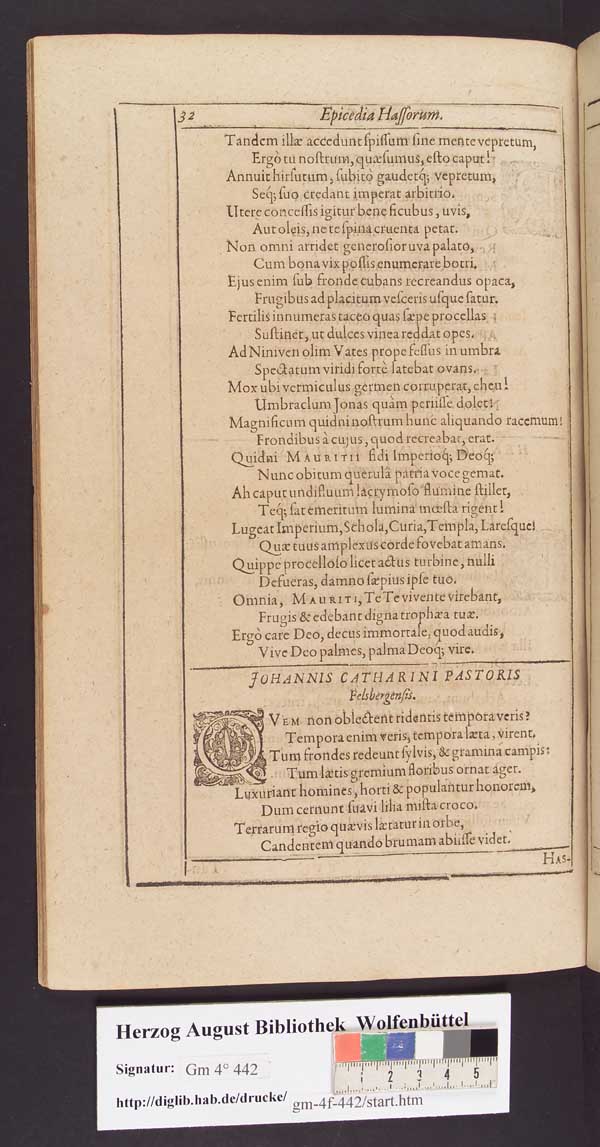 32 Epicedia Hassorum.
Tandem illæ accedunt spissum sine mente vepretum,
Ergò tu nostrum, quæsumus, esto caput!
Annuit hirsutum, subitò gaudetq; vepretum,
Seq; suo credant imperat arbitrio.
Utere concessis igitur bene ficubus, uvis,
Aut oleis, ne te spina cruenta petat.
Non omni arridet generosior uva palato,
Cum bona vix possis enumerare botri.
Ejus enim sub fronde cubans recreandus opaca,
Frugibus ad placitum vesceris usque satur.
Fertilis innumeras taceo quas sæpe procellas
Sustinet, ut dulces vinea reddat opes.
Ad Niniven olim Vates prope fessus in umbra
Spectatum viridi fortè latebat ovans.
Mox ubi vermiculus germen corruperat, eheu!
Umbraclum Jonas quàm periisse dolet!
Magnificum quidni nostrum hunc aliquando racemum!
Frondibus à cujus, quod recreabat, erat.
Quidni MAURITII fidi Imperioq; Deoq;
Nunc obitum querulâ patria voce gemat.
Ah caput undifluum lacrymoso flumine stillet,
Teq; sat emeritum lumina mœsta rigent!
Lugeat Imperium, Schola, Curia, Templa, Laresque!
Quæ tuus amplexus corde fovebat amans.
Quippe procelloso licet actus turbine, nulli
Defueras, damno sæpius ipse tuo.
Omnia, MAURITI, Te Te vivente virebant,
Frugis & edebant digna trophæa tuæ.
Ergò care Deo, decus immortale, quod audis,
Vive Deo palmes, palma Deoq; vire.
JOHANNIS CATHARINI PASTORIS
Felsbergensis.
QVEM non oblectent ridentis tempora veris?
Tempora enim veris, tempora læta, virent.
Tum frondes redeunt sylvis, & gramina campis:
Tum lætis gremium floribus ornat ager.
Luxuriant homines, horti & populantur honorem,
Dum cernunt suavi lilia mista croco.
Terrarum regio quævis lætatur in orbe,
Candentem quando brumam abiisse videt.
HAS-
Herzog August Bibliothek Wolfenbüttel
Signatur: Gm 4° 442
http://diglib.hab.de/drucke/ gm-4f-442/start.htm
1 2 3 4 5